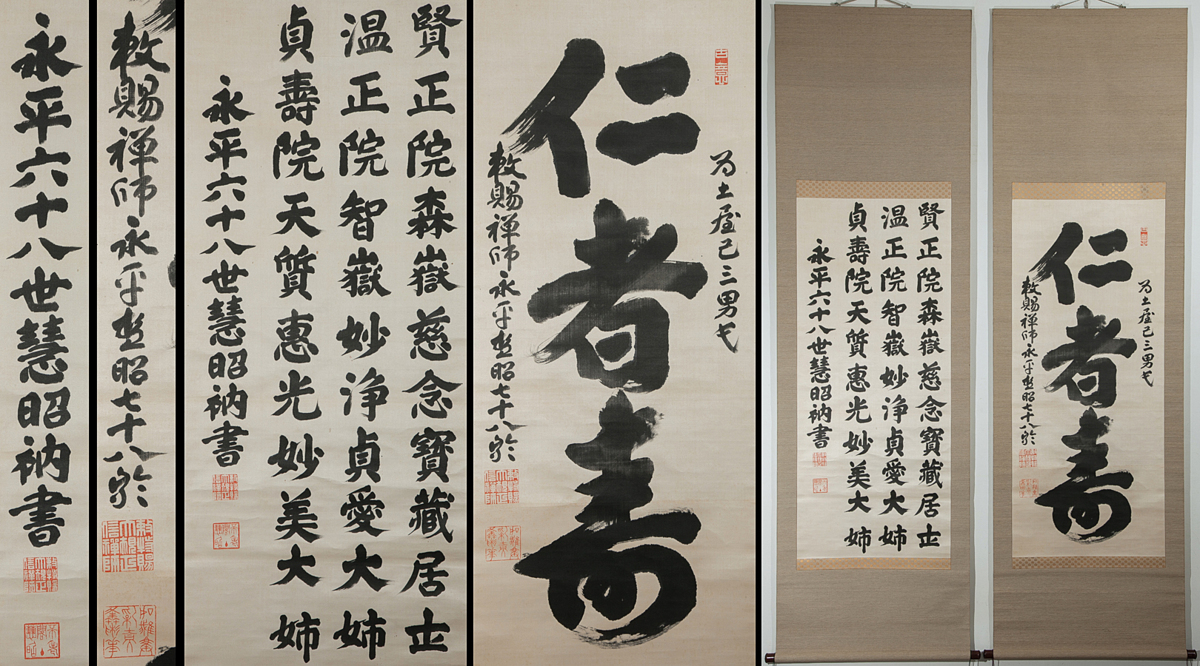 永平六十八世慧昭衲書
敕賜禅師永平慧昭七十八
賢正院森嶽慈念寶藏居士
温正院智嶽妙浄貞愛大姉
貞壽院天質惠光妙美大姉
永平六十八世慧昭衲書
为土屋己三男
仁者寿
敕賜禅師永平慧昭七十八
賢正院森嶽慈念寶藏居士
温正院智嶽妙浄貞愛大姉
貞壽院天質惠光妙美大姉
永平六十八世慧昭衲書
为土屋己三男
仁者寿
敕賜禅師永平慧昭七十八